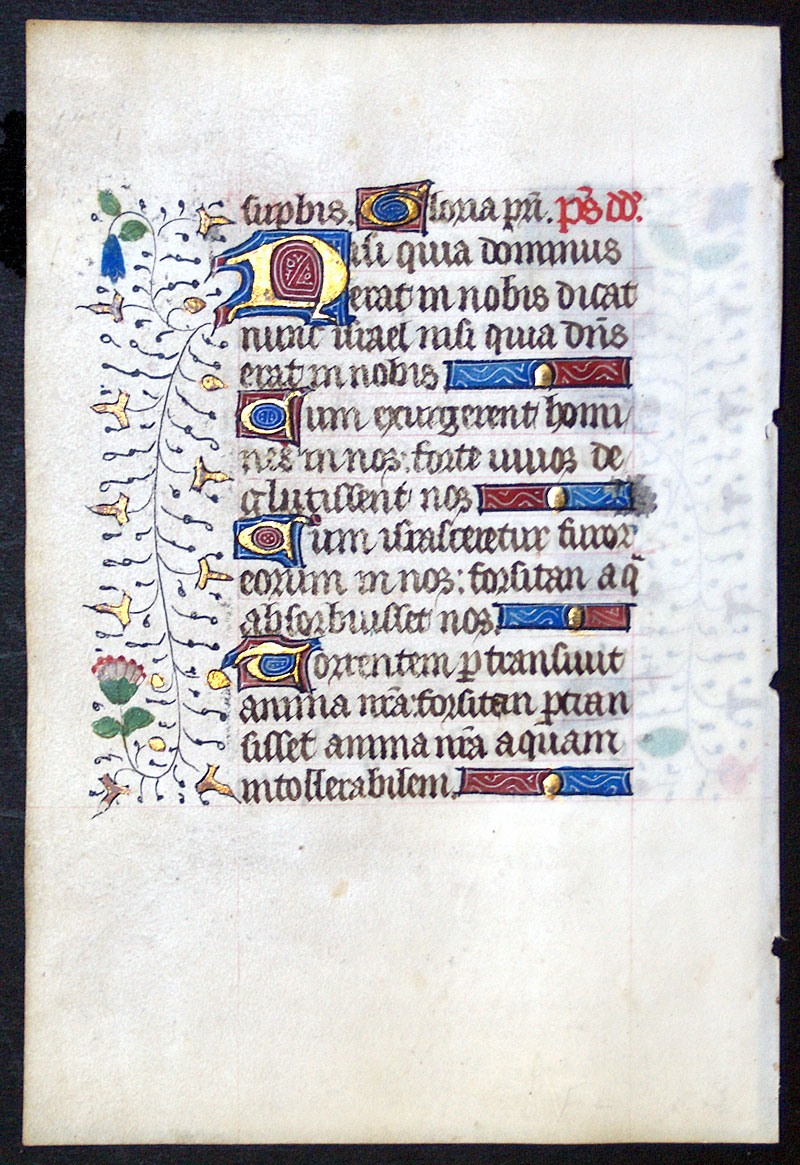 supbis. Gloria pr̄i. ps̄ dd̄.
Nisi quia dominus
erat in nobis dicat
nunc israel nisi quia dn̄s
erat in nobis
Cum exurgerent homi
nes in nos: forte uiuos de
glutissent nos
Cum irasceretur furor
eorum in nos: forsitan aq̄
absorbuisset nos.
Torrentem ꝑtransiuit
anima nr̄a: forsitan ꝑtran
sisset anima nr̄a aquam
intollerabilem.